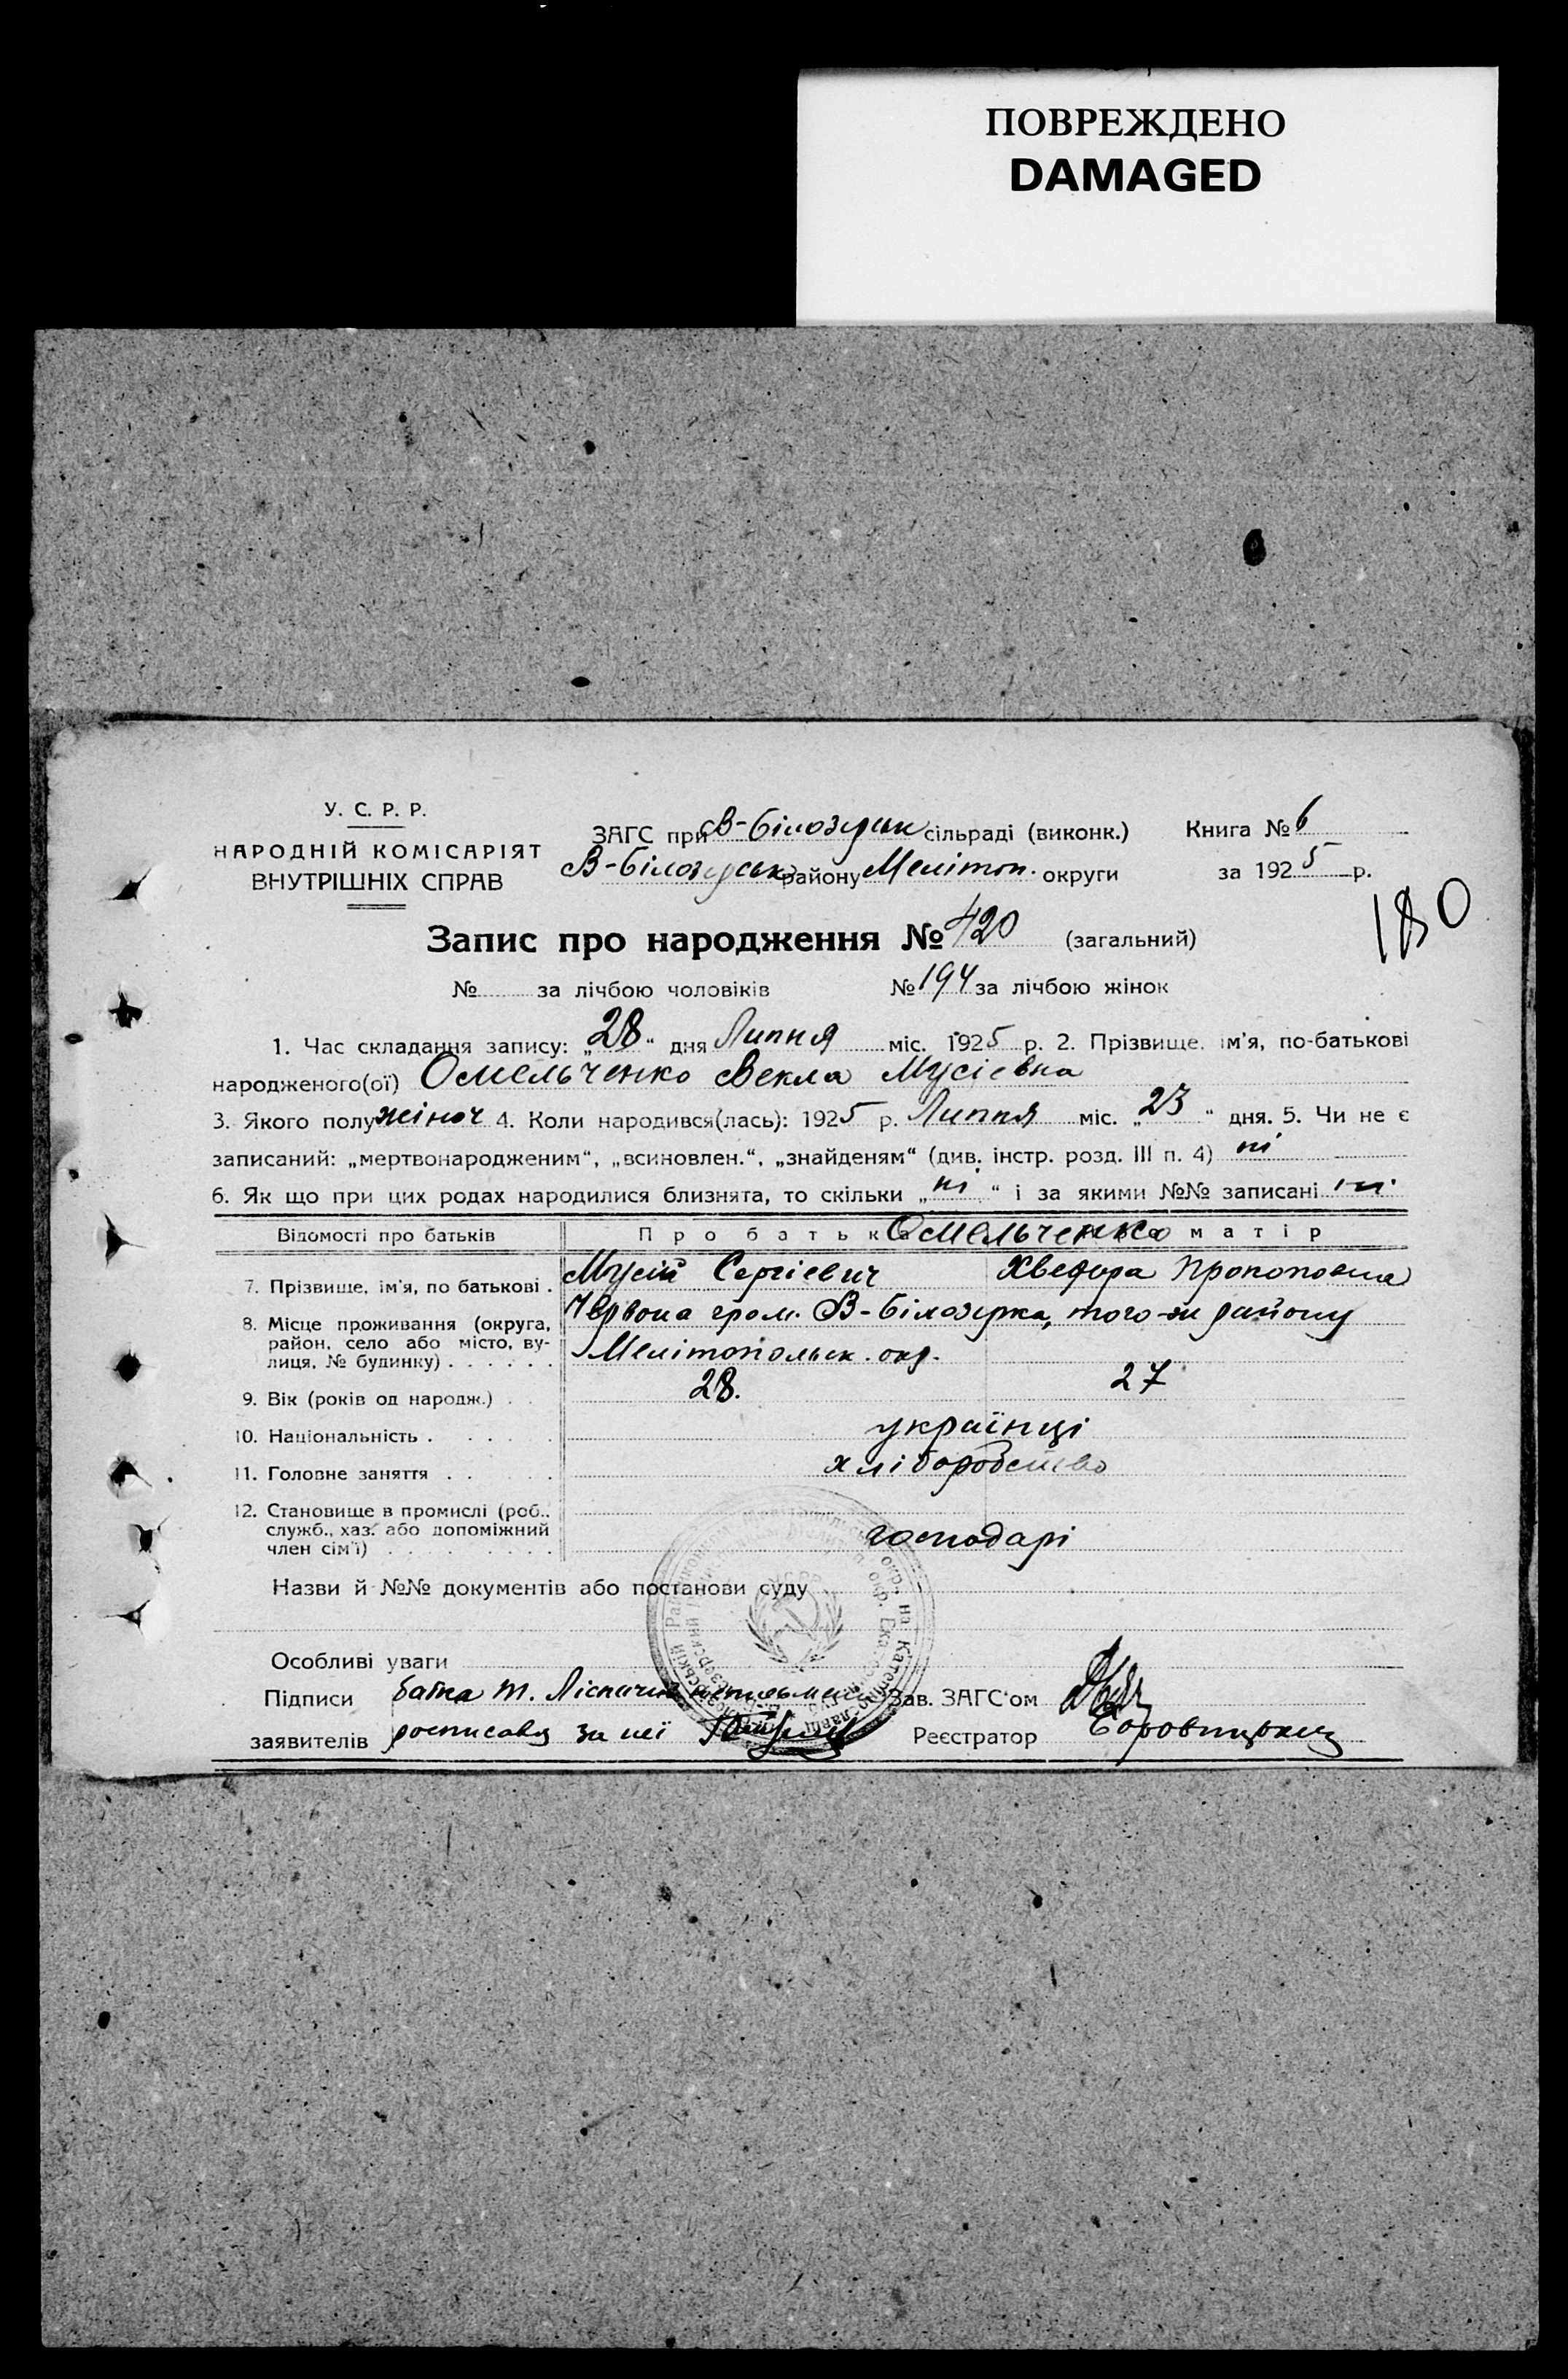 ПОВРЕЖДЕНО
DAMAGED
У. С. Р. Р.
НАРОДНІЙ КОМІСАРІЯТ
ВНУТРІШНІХ СПРАВ
ЗАГС при В-Білозерськ сільраді (виконк.)
В-Білозерськ району Меліт­оп. округи
Книга № 6
за 1925 р.
180
Запис про народження № 420 (загальний)
№ за лічбою чоловіків № 194 за лічбою жінок
1. Час складання запису: „28" дня Липня міс. 1925 р. 2. Прізвище, ім'я, по-батькові
народженого(ої) Омельченко Векла Мусіевна
3. Якого полу жіноч 4. Коли народився(лась): 1925 р. Липня міс. „23" дня. 5. Чи не є
записаний: „мертвонародженим", „всиновлен.", „знайденям" (див. інстр. розд. III п. 4) ні
6. Як що при цих родах народилися близнята, то скільки „ні" і за якими №№ записані ні
Відомості про батьків Про батька Омельченко матір
7. Прізвище, ім'я, по батькові . Мусій Сергієвич Хведора Прокоповна
8. Місце проживання (округа, район, село або місто, вулиця, № будинку) . . . . . . Червона гром. В-Білозерка, того-ж району
Мелітопольськ. окр.
9. Вік (років од народж.) . . 28. 27
10. Національність . . . . . українці
11. Головне заняття . . . . хліборобство
12. Становище в промислі (роб., служб., хаз. або допоміжний член сім'ї) . . . . . . . . господарі
Назви й №№ документів або постанови суду
Особливі уваги
Підписи батка т. неписьмен Зав. ЗАГС'ом
заявителів росписався за неї Реєстратор Боровицький